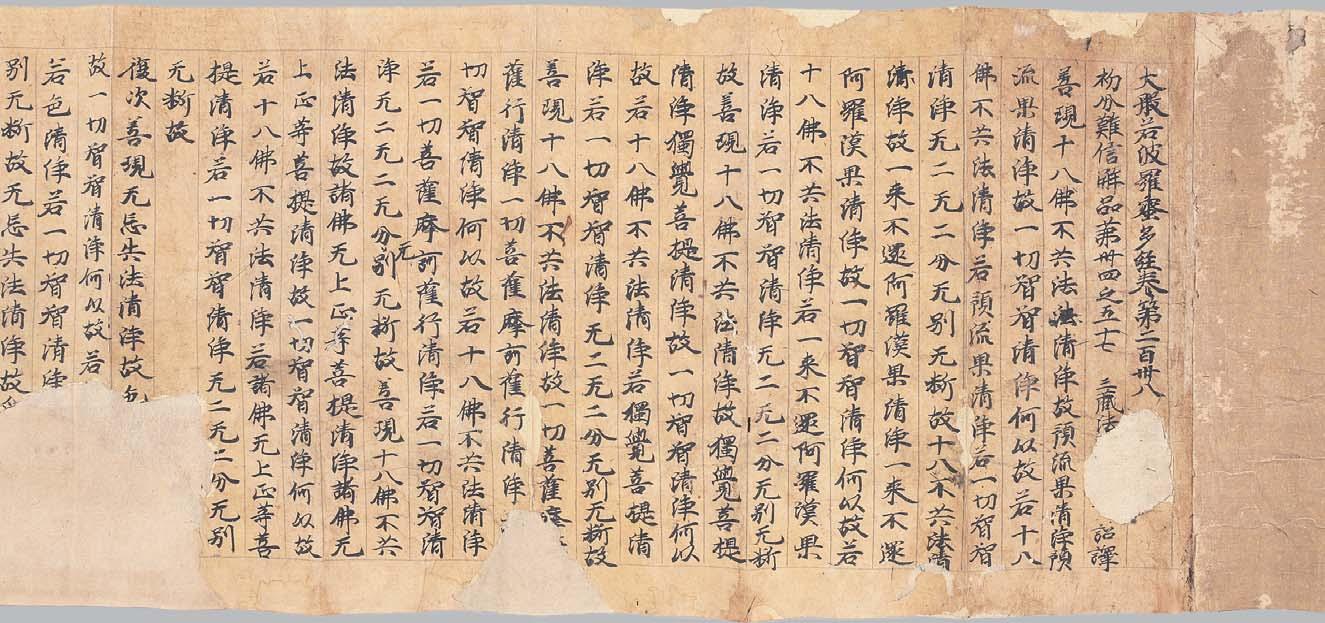 大般若波羅蜜多経巻第二百卌八
初分難信解品第卌四之五十七 三蔵法 詔譯
善現十八佛不共法法清淨故預流果清淨預
流果清淨故一切智智清淨何以故若十八
佛不共法清淨若預流果清淨若一切智智
清淨无二无二分无別无断故十八不共法清
淸淨故一来不還阿羅漢果清淨一来不還
阿羅漢果清淨故一切智智清淨何以故若
十八佛不共法清淨若一来不還阿羅漢果
清淨若一切智智清淨无二无二分无別无断
故善現十八佛不共法清淨故獨覺菩提
清淨獨覺菩提清淨故一切智智清淨何以
故若十八佛不共法清淨若獨覺菩提清
淨若一切智智清淨无二无二分无別无断故
善現十八佛不共法清淨故一切菩薩摩
薩行清淨一切菩薩摩訶薩行清淨
切智智清淨何以故若十八佛不共法清淨
若一切菩薩摩訶薩行清淨若一切智智清
淨无二无二分无別无断故善現十八佛不共
法清淨故諸佛无上正等菩提清淨諸佛无
上正等菩提清淨故一切智智清淨何以故
若十八佛不共法清淨若諸佛无上正等菩
提清淨若一切智智清淨无二无二分无別
无断故
復次善現无忘失法清淨故色
故一切智智清淨何以故若
若色清淨若一切智智清淨
別无断故无忘失法清淨故